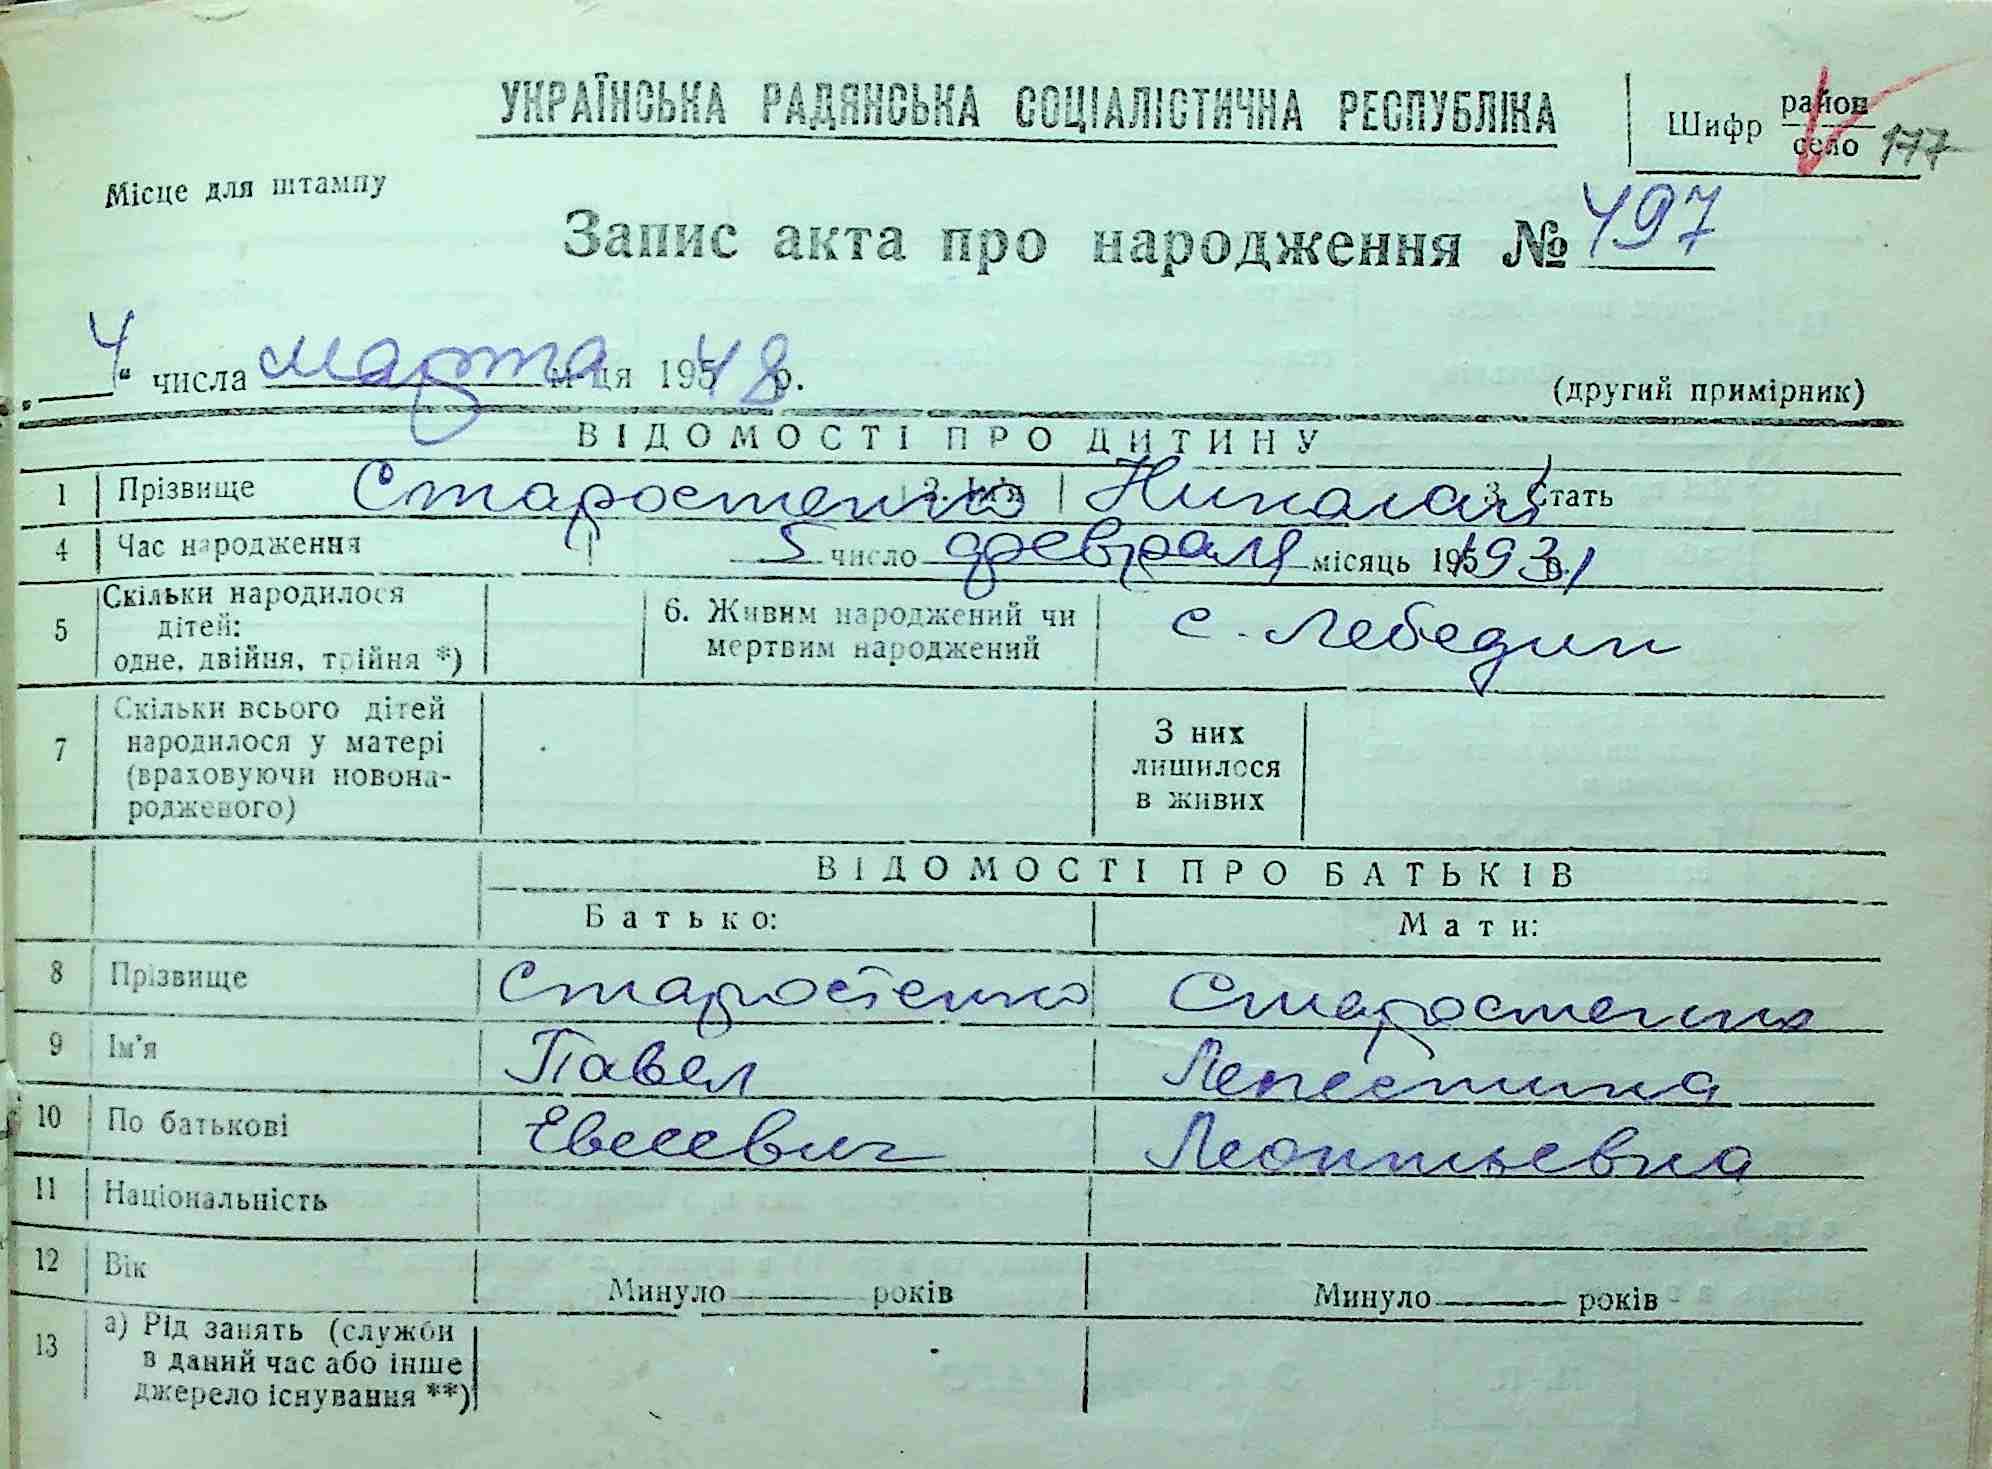 УКРАЇНСЬКА РАДЯНСЬКА СОЦІАЛІСТИЧНА РЕСПУБЛІКА
Шифр район село 177
Місце для штампу
Запис акта про народження № 497
„4“ числа марта м-ця 195 48 р.
(другий примірник)
ВІДОМОСТІ ПРО ДИТИНУ
1 Прізвище Старостенко 2. Ім'я Николай 3. Стать
4 Час народження 5 число февраля місяць 195 1931 р.
5 Скільки народилося дітей: одне, двійня, трійня *)
6. Живим народжений чи мертвим народжений
с. Лебедин
7 Скільки всього дітей народилося у матері (враховуючи новона-
родженого)
З них лишилося в живих
ВІДОМОСТІ ПРО БАТЬКІВ
Батько: Мати:
8 Прізвище Старостенко Старостенко
9 Ім'я Павел Лепестина
10 По батькові Евсеевич Леонтьевна
11 Національність
12 Вік Минуло років Минуло років
13 а) Рід занять (служби
в даний час або інше
джерело існування **)